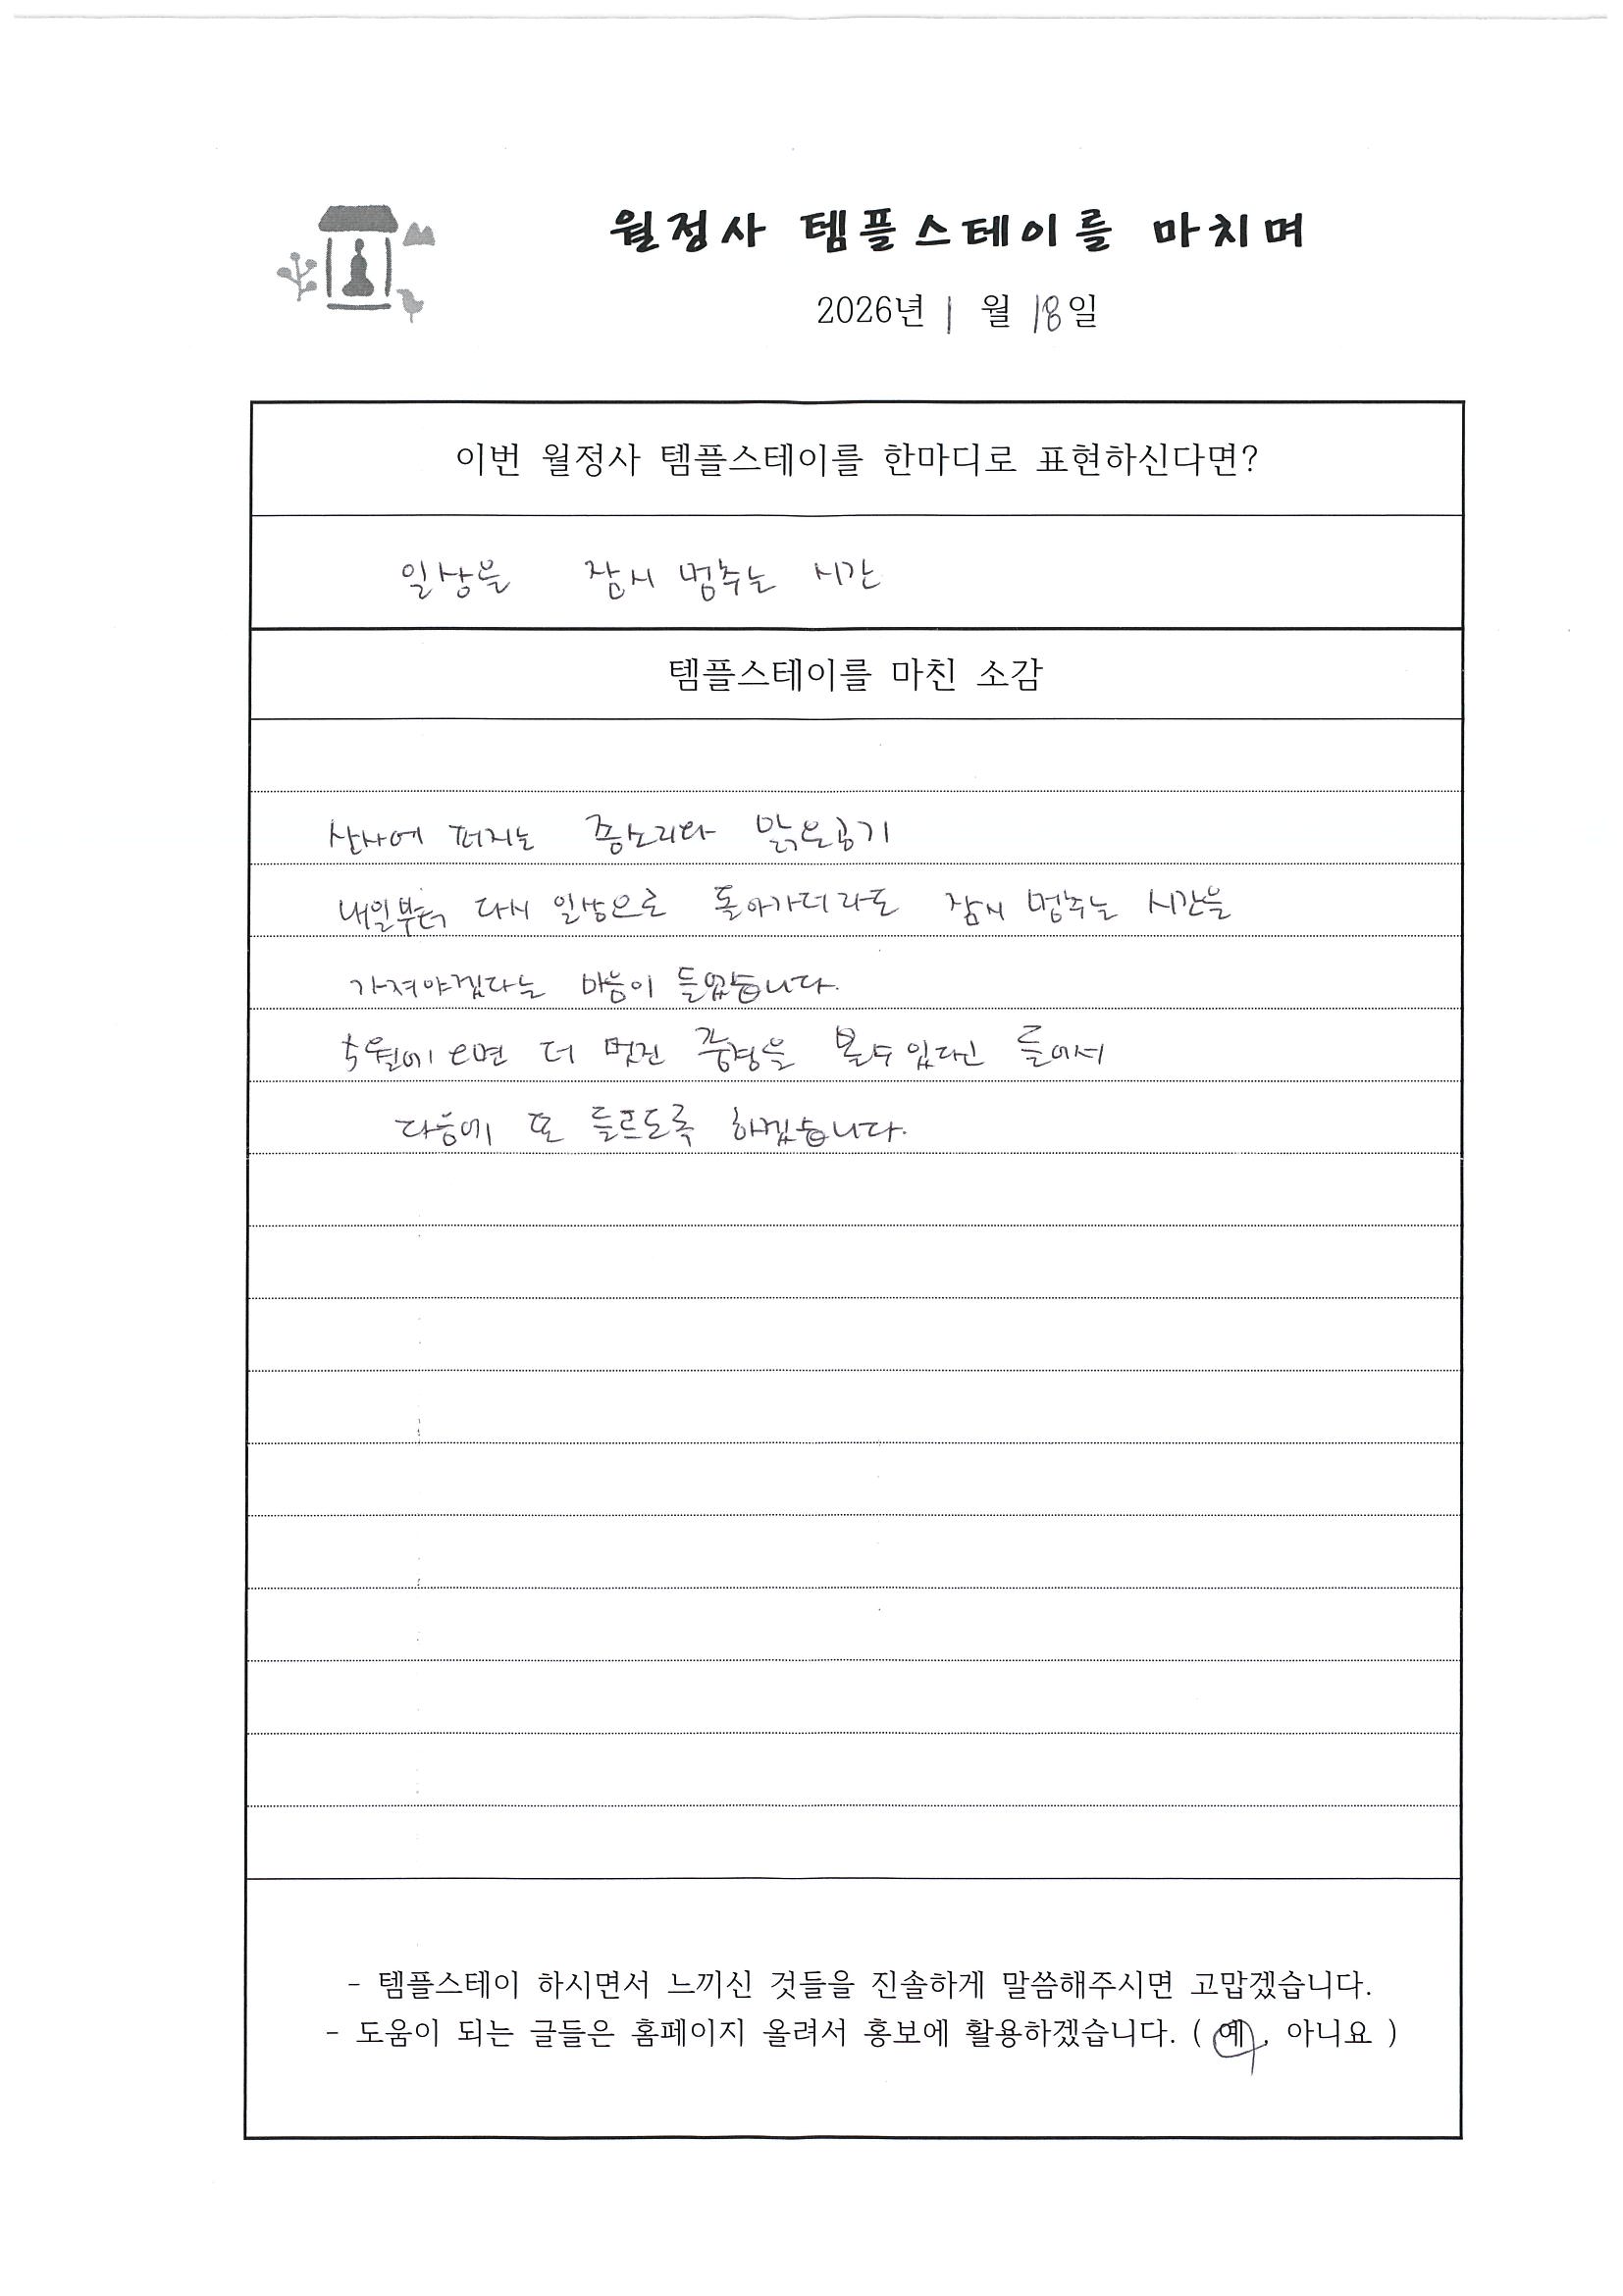 월정사 템플스테이를 마치며
2026년 1월 18일
이번 월정사 템플스테이를 한마디로 표현하신다면?
일상을 잠시 멈추는 시간
템플스테이를 마친 소감
산사에 퍼지는 종소리와 맑은공기
내일부터 다시 일상으로 돌아가더라도 잠시 멈추는 시간을
가져야겠다는 마음이 들었습니다.
5월에 오면 더 멋진 풍경을 볼수 있다고 들어서
다음에 또 들르도록 하겠습니다.
- 템플스테이 하시면서 느끼신 것들을 진솔하게 말씀해주시면 고맙겠습니다.
- 도움이 되는 글들은 홈페이지 올려서 홍보에 활용하겠습니다. ( 예 , 아니요 )